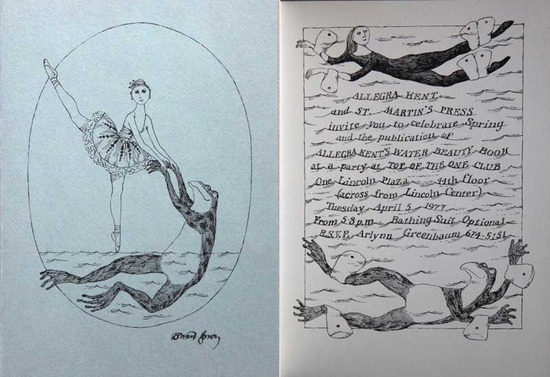 Edward Gorey
ALLEGRA KENT
and ST. MARTIN'S PRESS
invite you to celebrate Spring
and the publication of
ALLEGRA KENT'S WATER BEAUTY BOOK
at a party at TOP OF THE ONE CLUB
One Lincoln Plaza 44th floor
(across from Lincoln Center)
Tuesday April 5 1977
From 5-8 p.m. Bathing Suit Optional
R.S.V.P. Arlynn Greenbaum 674-5151